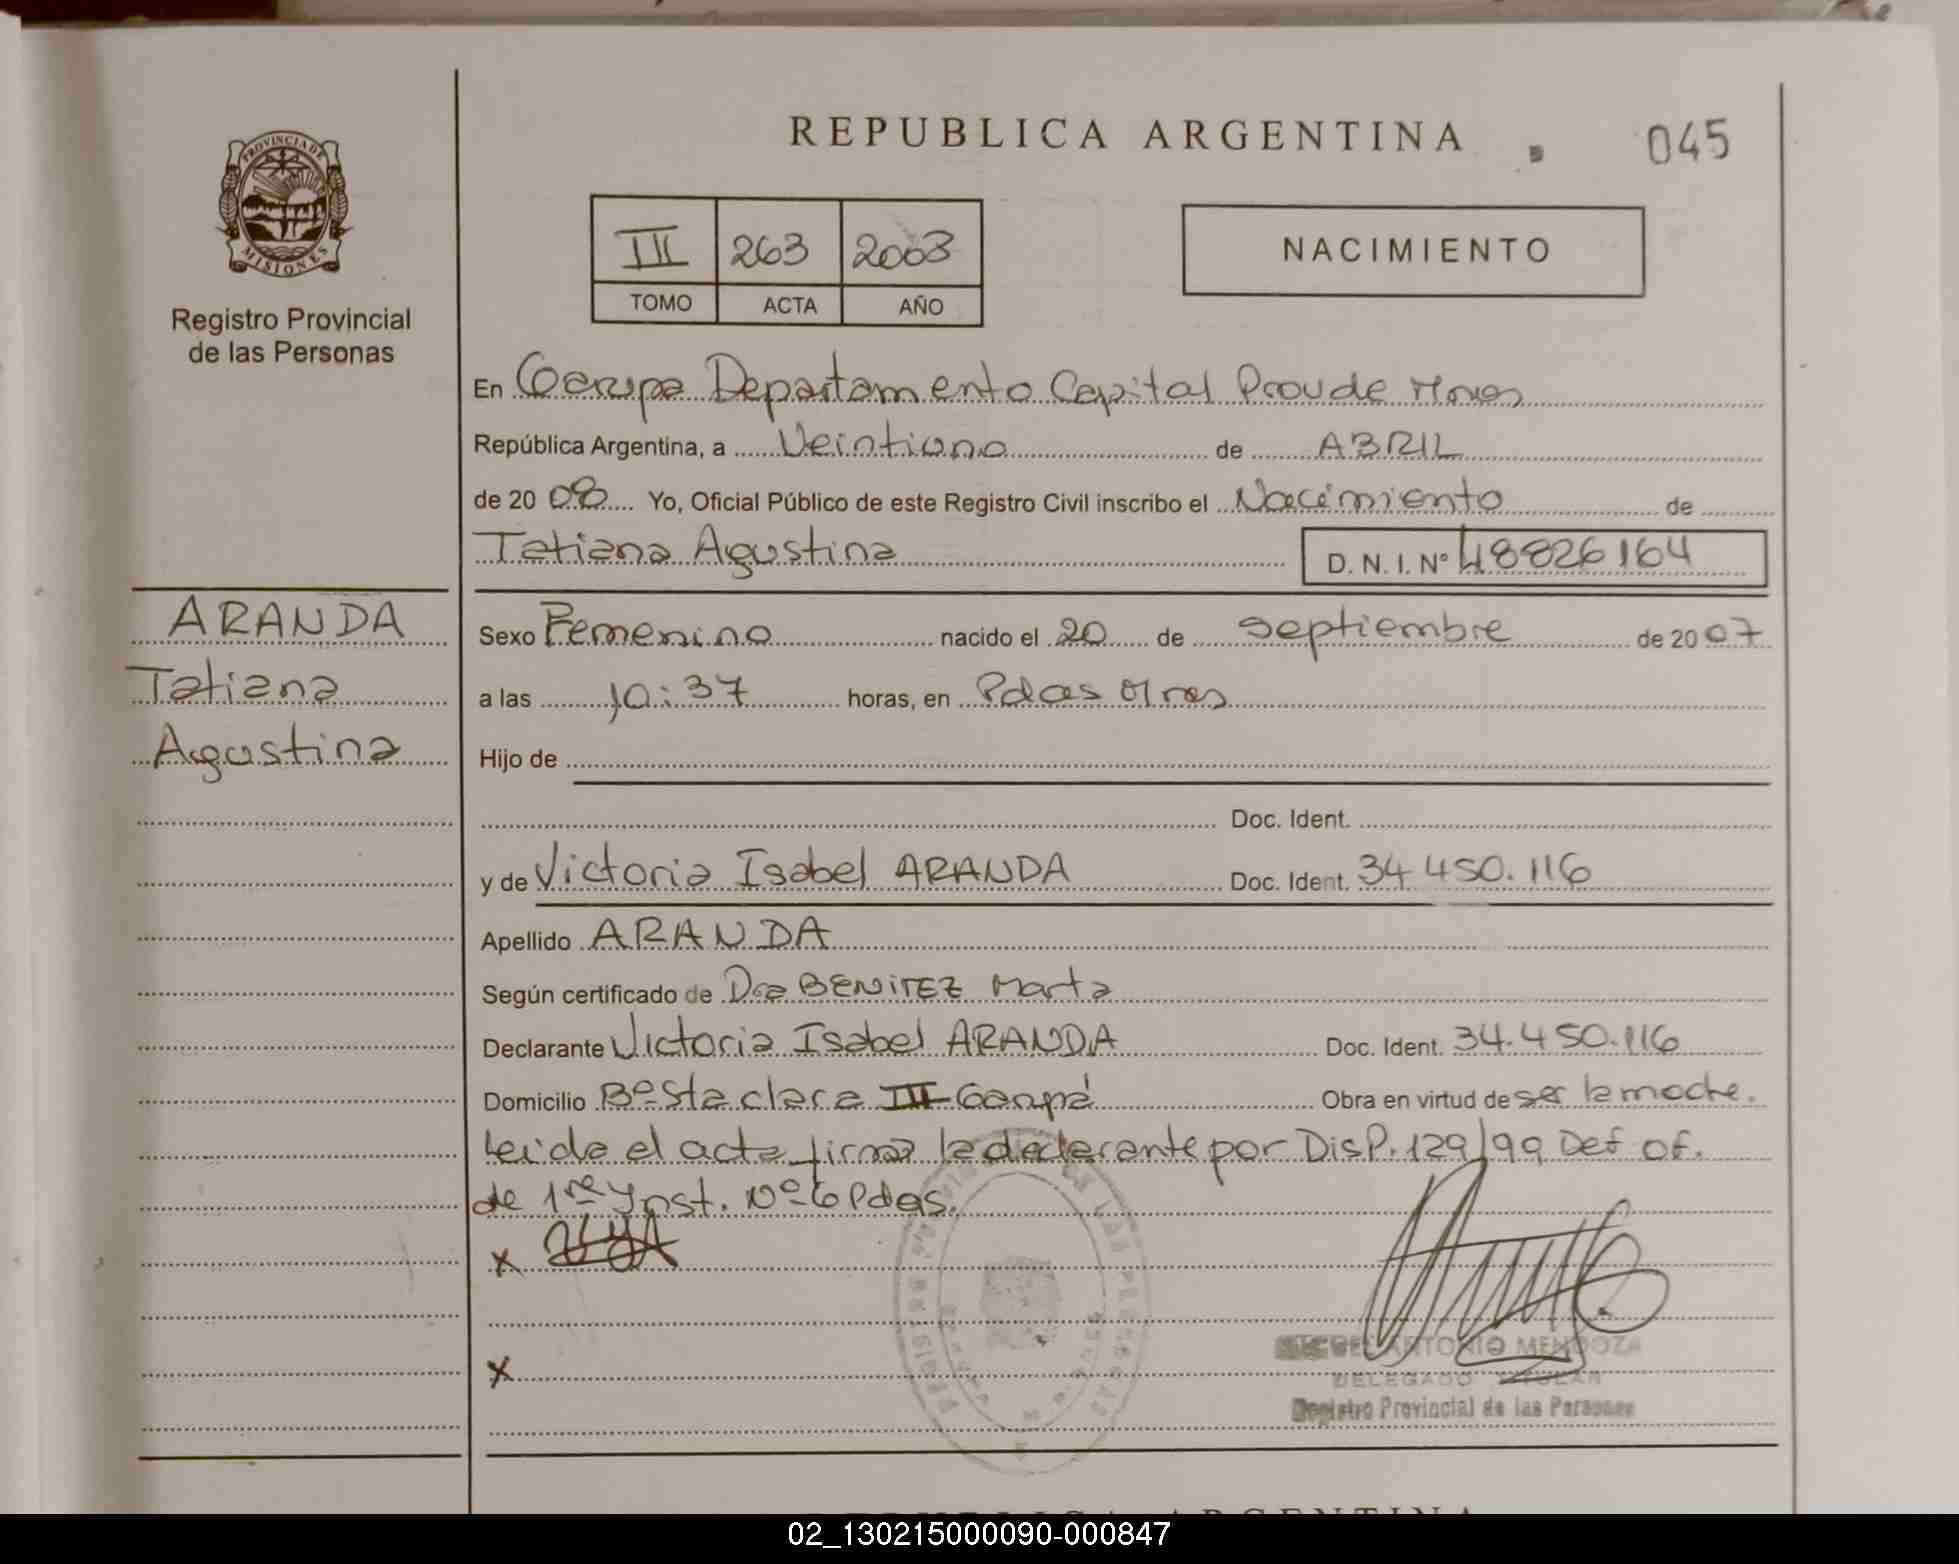 REPUBLICA ARGENTINA
045
PROVINCIA DE
MISIONES
Registro Provincial
de las Personas
III 263 2003
TOMO ACTA AÑO
NACIMIENTO
En Garupa Departamento Capital Prov de Mnes
República Argentina, a Veintiuno de ABRIL
de 20 08 Yo, Oficial Público de este Registro Civil inscribo el Nacimiento de
Tatiana Agustina D. N. I. Nº 48826164
ARANDA
Tatiana
Agustina
Sexo Femenino nacido el 20 de Septiembre de 20 07
a las 10:37 horas, en Pdas Mnes
Hijo de
Doc. Ident.
y de Victoria Isabel ARANDA Doc. Ident. 34.450.116
Apellido ARANDA
Según certificado de Dra BENITEZ Marta
Declarante Victoria Isabel ARANDA Doc. Ident. 34.450.116
Domicilio Bº Sta clara III Garupá Obra en virtud de ser la madre.
Leida el acta firma la declarante por Disp. 129/99 Def of.
de 1ra Ynst. Nº 6 Pdas.
x
x
ANTONIO MENDOZA
DELEGADO TITULAR
Registro Provincial de las Personas
REPUBLICA ARGENTINA
02_130215000090-000847